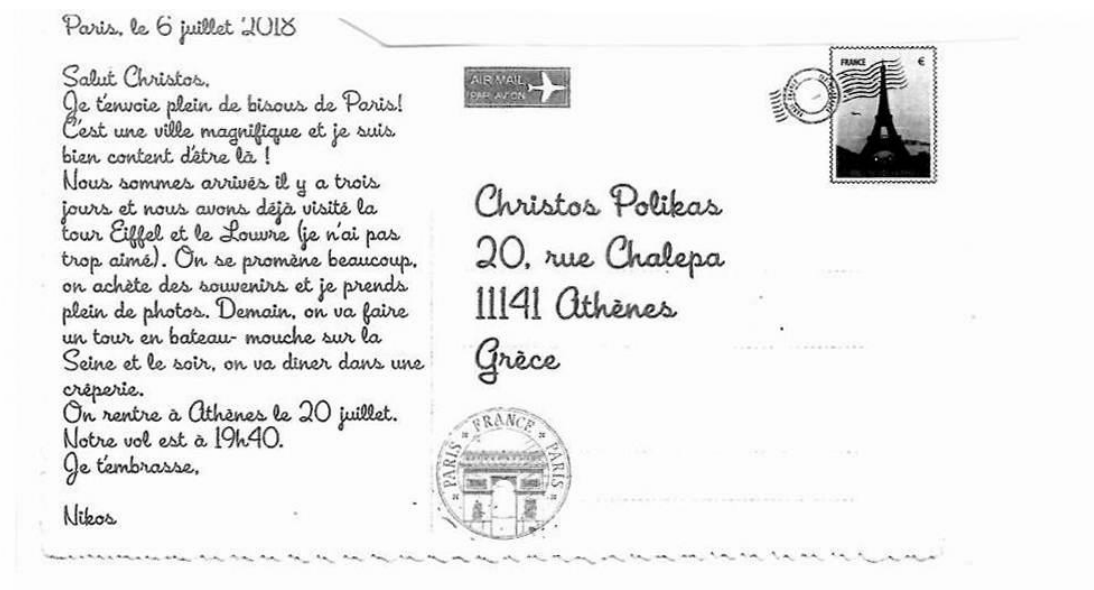 Paris, le 6 juillet 2018
Salut Christos,
Je t'envoie plein de bisous de Paris!
C'est une ville magnifique et je suis
bien content d'être là !
Nous sommes arrivés il y a trois
jours et nous avons déjà visité la
tour Eiffel et le Louvre (je n'ai pas
trop aimé). On se promène beaucoup,
on achète des souvenirs et je prends
plein de photos. Demain, on va faire
un tour en bateau- mouche sur la
Seine et le soir, on va dîner dans une
crêperie.
On rentre à Athènes le 20 juillet.
Notre vol est à 19h40.
Je t'embrasse,
Nikos
AIR MAIL
PAR AVION
FRANCE €
Christos Polikas
20, rue Chalepa
11141 Athènes
Grèce
PARIS * FRANCE * PARIS